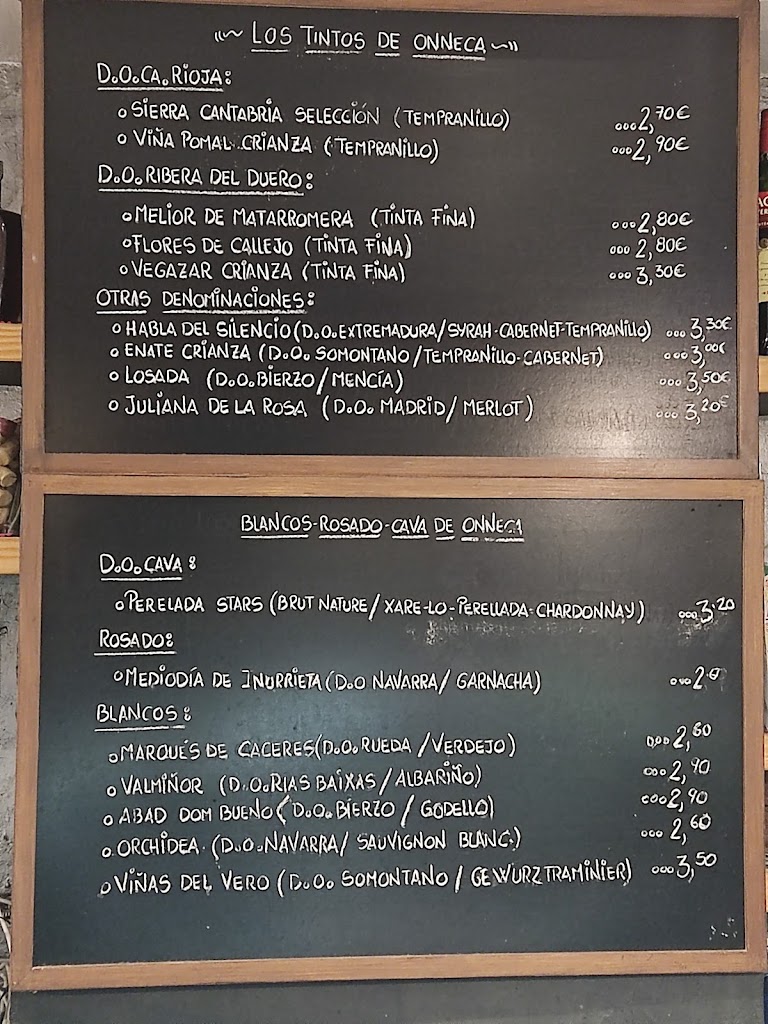 LOS TINTOS DE ONNECA
D.O.CA. RIOJA:
SIERRA CANTABRIA SELECCIÓN (TEMPRANILLO) ...2,70€
VIÑA POMAL CRIANZA (TEMPRANILLO) ...2,90€
D.O. RIBERA DEL DUERO:
MELIOR DE MATARROMERA (TINTA FINA) ...2,80€
FLORES DE CALLEJO (TINTA FINA) ...2,80€
VEGAZAR CRIANZA (TINTA FINA) ...3,30€
OTRAS DENOMINACIONES:
HABLA DEL SILENCIO (D.O. EXTREMADURA/SYRAH-CABERNET-TEMPRANILLO) ...3,30€
ENATE CRIANZA (D.O. SOMONTANO/TEMPRANILLO-CABERNET) ...3,00€
LOSADA (D.O. BIERZO/MENCÍA) ...3,50€
JULIANA DE LA ROSA (D.O. MADRID/MERLOT) ...3,20€
BLANCOS-ROSADO-CAVA DE ONNECA
D.O. CAVA:
PERELADA STARS (BRUT NATURE/XARE-LO-PERELLADA-CHARDONNAY) ...3,20
ROSADO:
MEDIODÍA DE INURRIETA (D.O NAVARRA/GARNACHA)
BLANCOS:
MARQUÉS DE CACERES (D.O. RUEDA/VERDEJO) ...2,60
VALMIÑOR (D.O. RIAS BAIXAS/ALBARIÑO) ...2,90
ABAD DOM BUENO (D.O. BIERZO/GODELLO) ...2,90
ORCHIDEA (D.O. NAVARRA/SAUVIGNON BLANC) ...2,60
VIÑAS DEL VERO (D.O. SOMONTANO/GEWURZTRAMINIER) ...3,50